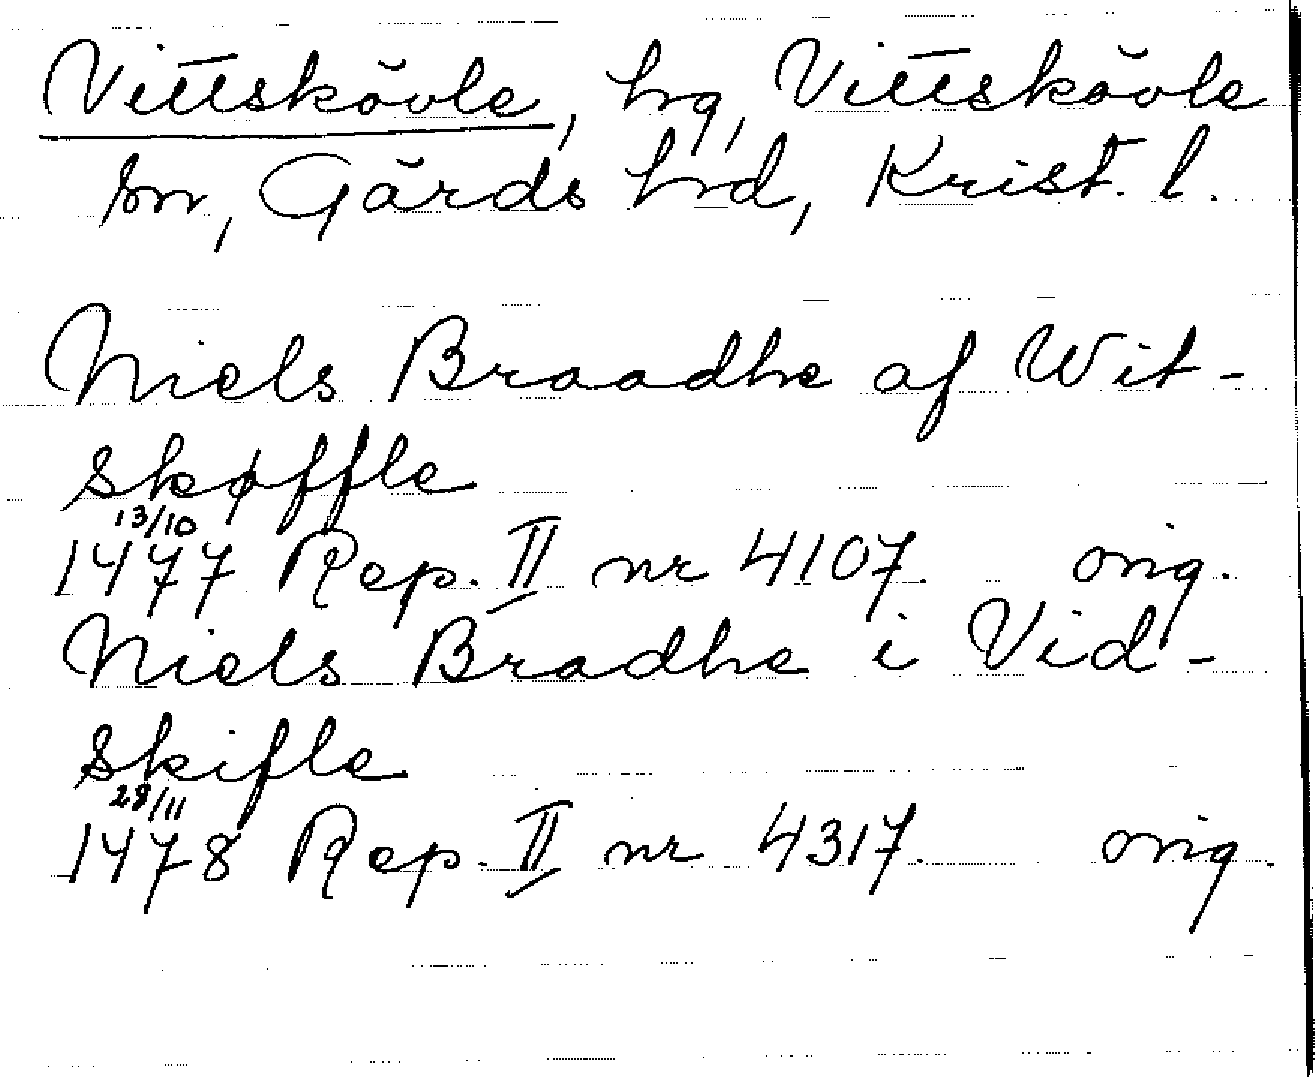 Vittskövle, hg, Vittskövle
sn, Gärds hrd, Krist. l.
Niels Braadhe af Wit-
skøffle
13/10
1477 Rep. II nr 4107. orig.
Niels Bradhe i Vid-
skifle
28/11
1478 Rep. II nr 4317. orig.